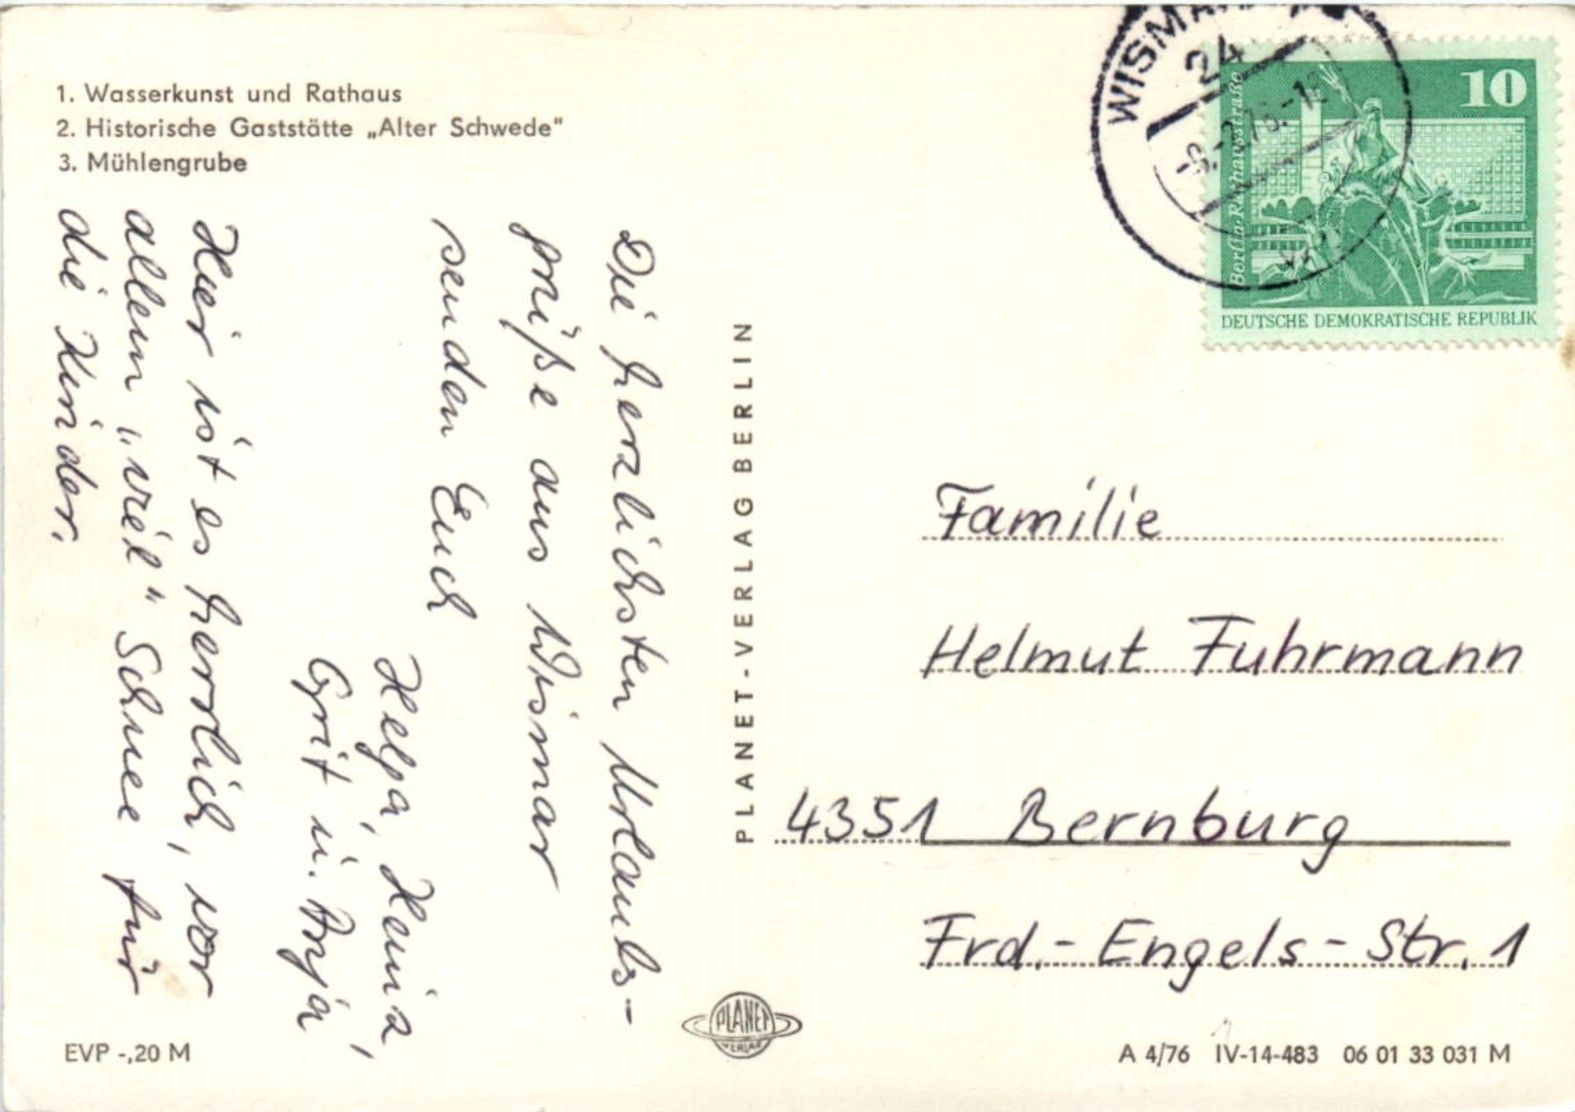 1. Wasserkunst und Rathaus
2. Historische Gaststätte „Alter Schwede"
3. Mühlengrube
Die herzlichsten Urlaubs-
grüße aus Wismar
senden Euch
Helga, Heinz,
Gyrit u. Anja
Hier ist es herrlich, vor
allem „viel" Schnee für
die Kinder.
PLANET-VERLAG BERLIN
WISMAR
24
10
Berlin-Rathausstraße
DEUTSCHE DEMOKRATISCHE REPUBLIK
Familie
Helmut Fuhrmann
4351 Bernburg
Frd.-Engels-Str. 1
PLANET
VERLAG
EVP -,20 M
A 4/76 IV-14-483 06 01 33 031 M